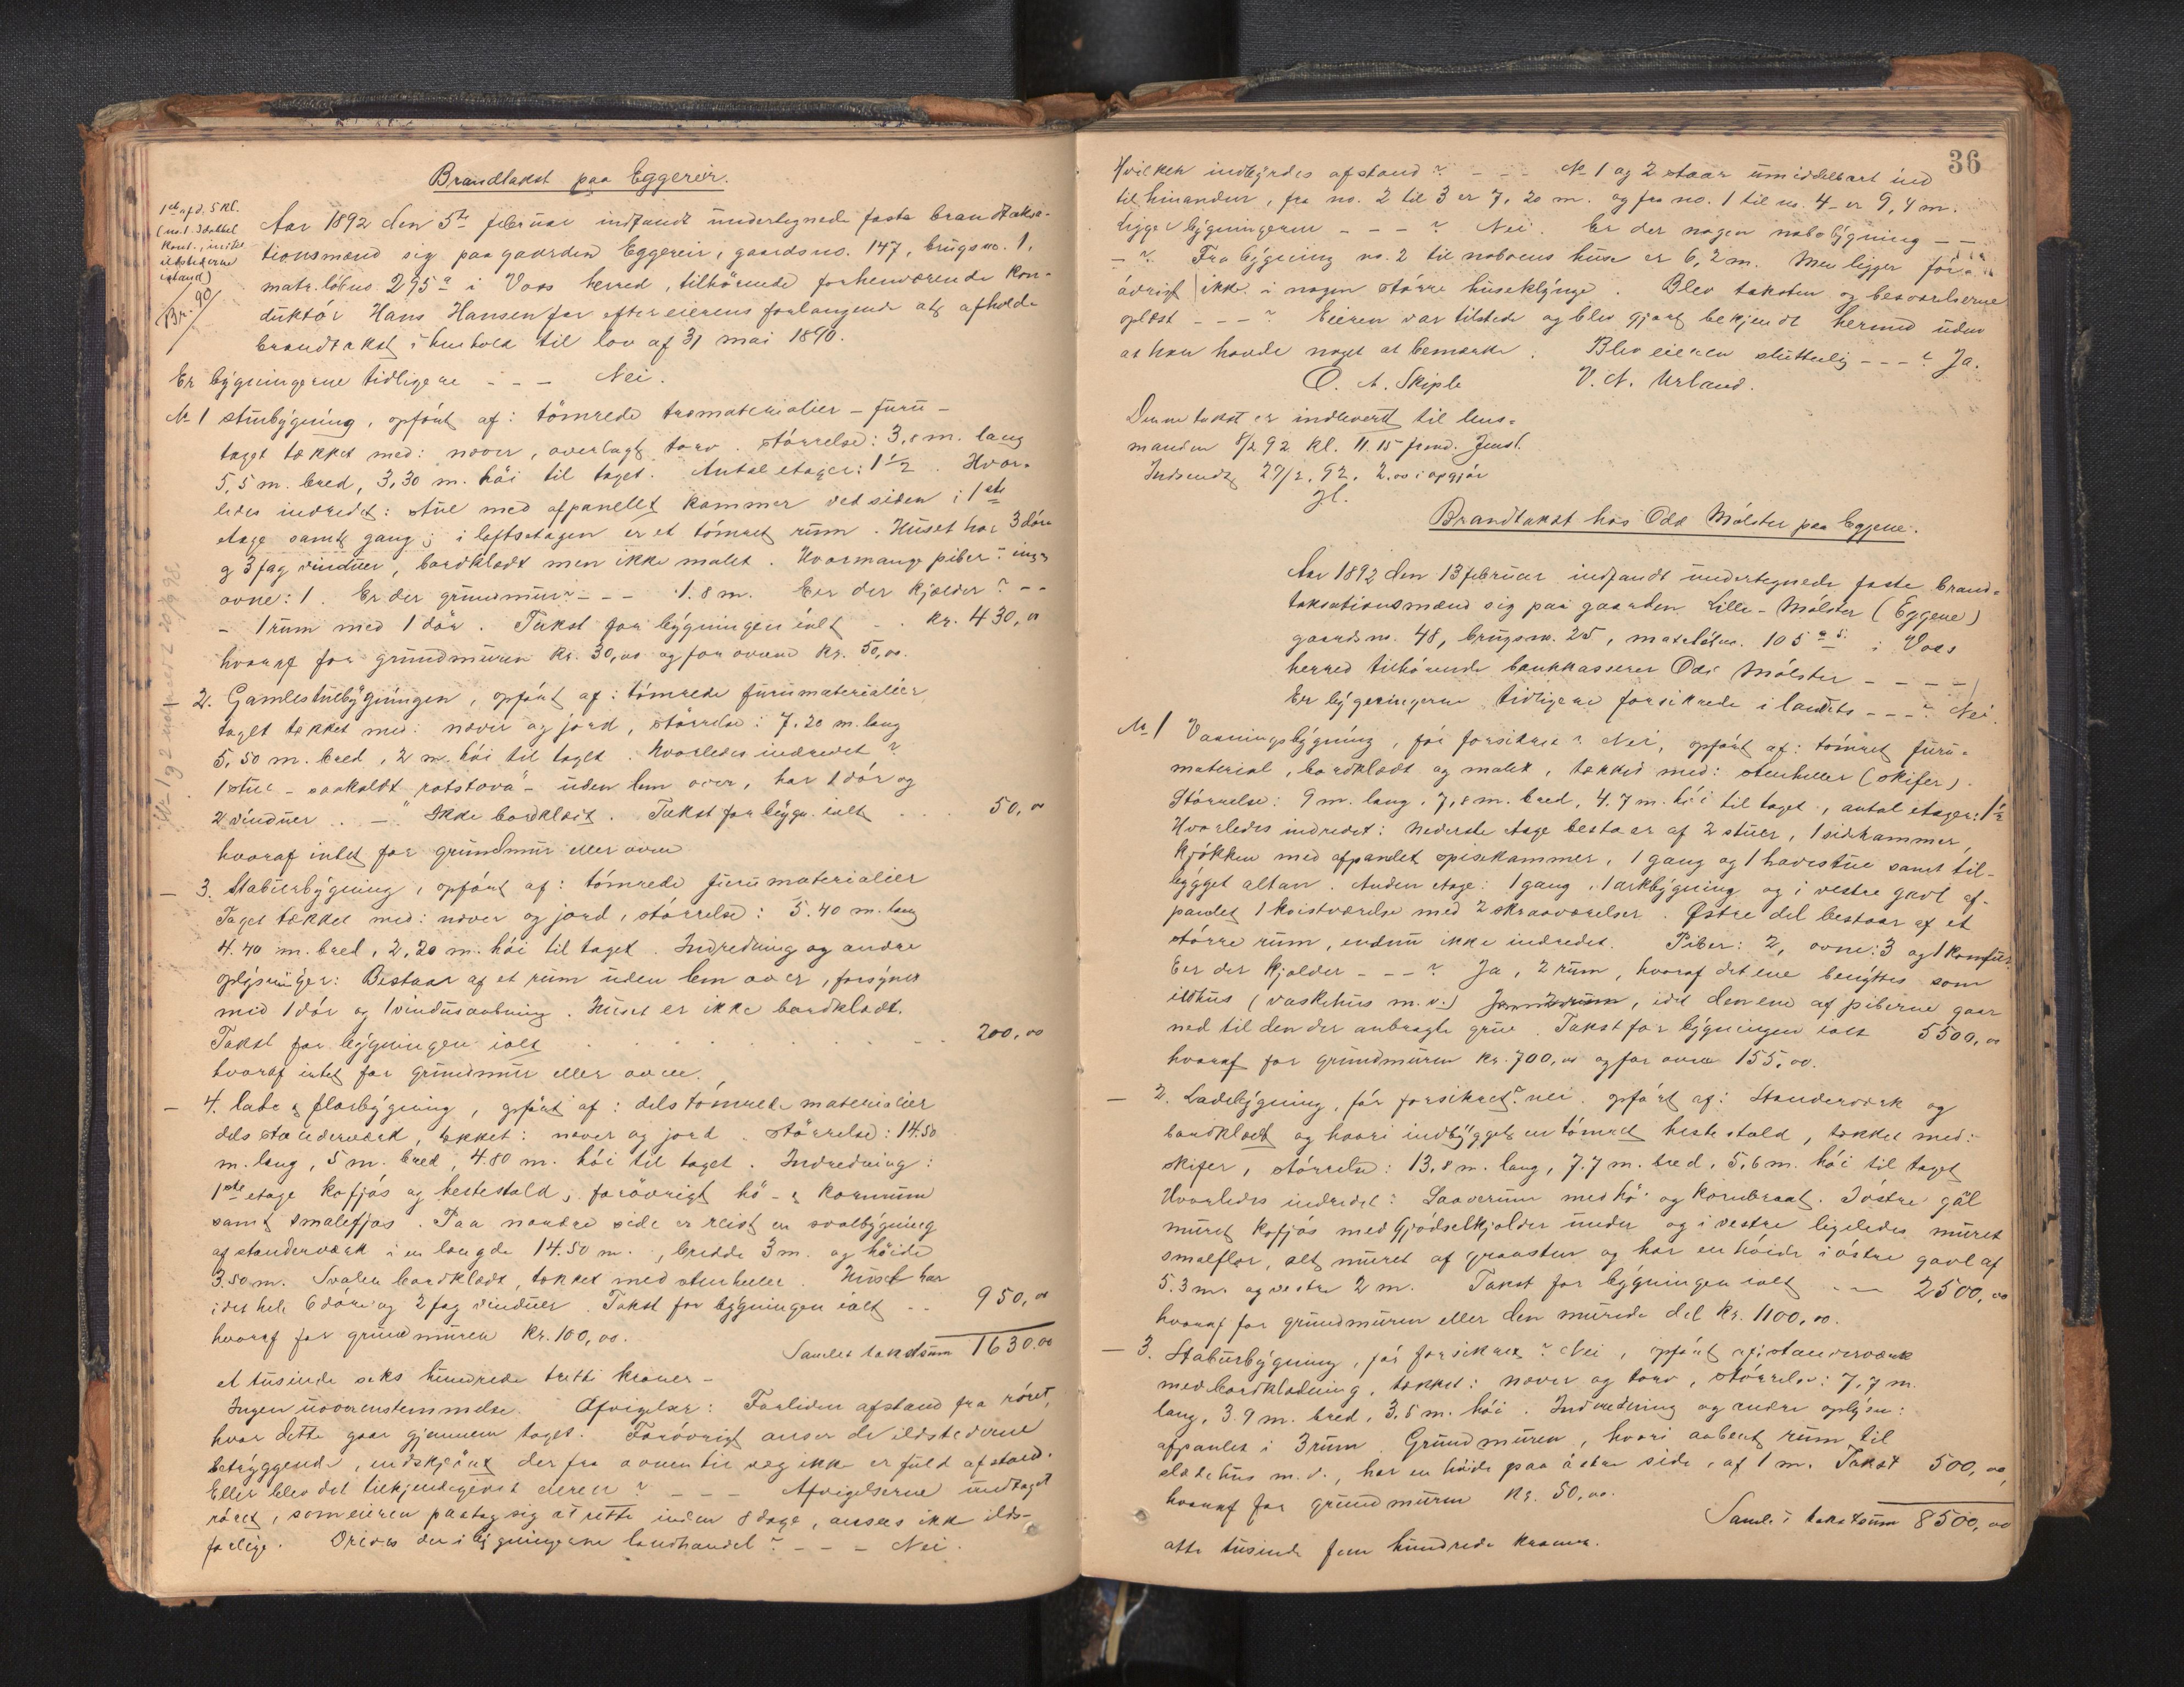 Brandtakst paa Eggereir.
1ste afd. 5 kl.
(no. 1. 3 dobbel
kont., ildstederne
istand)
Br. 90/
Aar 1892 den 5te februar indfandt undertegnede faste brandtaksa-
tionsmænd sig paa gaarden Eggereir, gaardsno. 147, brugsno. 1,
matr. löbno. 295a i Voss herred, tilhörende forhenværende kon-
duktör Hans Hansen for efter eierens forlangende at afholde
brandtakst i henhold til lov af 31 mai 1890.
Er bygningerne tidligere - - - Nei.
No 1 Stuebygning, opfört af: tömrede træmaterialier - furu -
taget tækket med: næver, overlagt torv. Störrelse: 3,8 m. lang
5,5 m. bred, 3,30 m. höi til taget. Antal etager: 1½. Hvor-
ledes indredet: Stue med afpanellet kammer ved siden i 1ste
etage samt gang; i loftsetagen er et tömret rum. Huset har 3 döre
og 3 fag vinduer, bordklædt men ikke malet. Hvormange piber? ingen
ovne: 1. Er der grundmur? - - - 1.8 m. Er der kjælder? - -
- 1 rum med 1 dör. Takst for bygningen ialt . . kr. 430,00
hvoraf for grundmuren kr. 30,00 og for ovnen kr. 50,00.
- 2. Gamlestuebygningen, opfört af: tömrede furumaterialier
taget tækket med: næver og jord, störrelse: 7.20 m. lang
5,50 m. bred, 2 m. höi til taget. Hvorledes indredet?
1 stue - saakaldt "rotstova" - uden lem over, har 1 dör og
2 vinduer . . - . Ikke bordklædt. Takst for bygn. ialt . . . 50,00
hvoraf intet for grundmur eller ovne
- 3. Stabursbygning, opfört af: tömrede furumaterialier
Taget tækket med: næver og jord, störrelse: 5.40 m. lang
4.40 m. bred, 2,20 m. höi til taget. Indredning og andre
oplysninger: Bestaar af et rum uden lem over, forsynet
med 1 dör og 1 vindusaabning. Huset er ikke bordklædt.
Takst for bygningen ialt . . . . . . . 200,00
hvoraf intet for grundmur eller ovne.
- 4. Lade & florbygning, opfört af: dels tömrede materialier
dels stenderværk, tækket: næver og jord. Störrelse: 14.50
m. lang, 5 m. bred, 4.80 m. höi til taget. Indredning:
1ste etage kofjös og hestestald, forövrigt hö- & kornrum
samt smalefjøs. Paa nordre side er reist en svalbygning
af stenderværk i en længde 14.50 m., bredde 3 m. og höide
3.50 m. Svalen bordklædt, tækket med stenheller. Huset har
i det hele 6 döre og 2 fag vinduer. Takst for bygningen ialt . . 950,00
hvoraf for grundmuren kr. 100,00.
Samlet takstsum 1630.00
et tusinde seks hundrede tretti kroner -
Ingen uoverenstemmelse. Afvigelser: Forliden afstand fra röret,
hvor dette gaar gjennem taget. Forövrigt anser de ildstederne
betryggende, endskjönt der fra ovnen til væg ikke er fuld afstand.
Eller blev det tilkjendegivet eieren? - - - Afvigelserne undtaget
röret, som eieren paatog sig at rette inden 8 dage, ansees ikke ilds-
farlige. Drives der i bygningerne landhandel? - - - Nei.
No 1 og 2
36
Hvilken indbyrdes afstand? - - - No 1 og 2 staar umiddelbart ind
til hinanden, fra no. 2 til 3 er 7,20 m. og fra no. 1 til no. 4 - er 9,4 m.
Ligge bygningerne - - - ? Nei. Er der nogen nabobygning - -
- ? Fra bygning no. 2 til naboens huse er 6,2 m. Men ligger for-
övrigt ikke i nogen större huseklynge. Blev taksten og besvarelserne
oplæst - - - ? Eieren var tilstede og blev gjort bekjendt hermed uden
at han havde noget at bemærke. Blev eieren sluttelig - - - ? Ja.
O. A. Skiple V. N. Urland.
Denne takst er indleveret til lens-
manden 8/2 92 kl. 11.15 formd.
Indsendt 27/2. 92. 2.00 i opgjör
Brandtakst hos Odd Mölster paa Eggene.
Aar 1892 den 13 februar indfandt undertegnede faste brand-
taksationsmænd sig paa gaarden Lille-Mölster (Eggene)
gaardsno. 48, brugsno. 25, matr. löbno. 105 a 5 i Voss
herred tilhörende bankkasserer Odd Mölster - - - -
Er bygningerne tidligere forsikrede i landets - - - ? Nei.
No 1 Vaaningsbygning, för forsikret? Nei, opfört af: tömret furu-
material, bordklædt og malet, tækket med: stenheller (skifer).
Störrelse: 9 m. lang, 7,8 m. bred, 4.7 m. höi til taget, antal etager: 1½
Hvorledes indredet: Nederste etage bestaar af 2 stuer, 1 sidekammer,
kjökken med afpanelet spisekammer, 1 gang og 1 havestue samt til-
bygget altan. Anden etage: 1 gang, 1 arkbygning og i vestre gavl af-
panelet 1 kvistværelse med 2 skraaværelser. Østre del bestaar af et
större rum, endnu ikke indredet. Piber: 2, ovne: 3 og 1 komfur.
Er der kjælder - - - ? Ja, 2 rum, hvoraf det ene benyttes som
ildhus (vaskehus m. v.), idet den ene af piberne gaar
ned til den der anbragte grue. Takst for bygningen ialt 5500,00
hvoraf for grundmuren kr. 700,00 og for ovne 155,00.
- 2. Ladebygning, för forsikret? nei. opfört af: Stenderværk og
bordklædt og hvori indbygget en tömret hestestald, tækket med:
skifer, störrelse: 13,8 m. lang, 7.7 m. bred, 5,6 m. höi til taget
Hvorledes indredet? Laaverum med hö- og kornbraat. I östre gavl
muret kofjös med gjödselkjælder under og i vestre ligeledes muret
smalflor, alt muret af graasten og har en höide i östre gavl af
5.3 m. og vestre 2 m. Takst for bygningen ialt - - - 2500,00
hvoraf for grundmuren eller den murede del kr. 1100,00.
- 3. Stabursbygning, för forsikret? Nei, opfört af: stenderværk
med bordklædning, tækket: næver og torv, störrelse: 7,7 m.
lang, 3.9 m. bred, 3,5 m. höi. Indredning og andre oplysn:
afpanlet i 3 rum. Grundmuren, hvori aabent rum til
slædehus m. v., har en höide paa östre side, af 1 m. Takst 500,00,
hvoraf for grundmuren kr. 50,00.
Samlet takstsum 8500,00
otte tusinde fem hundrede kroner.